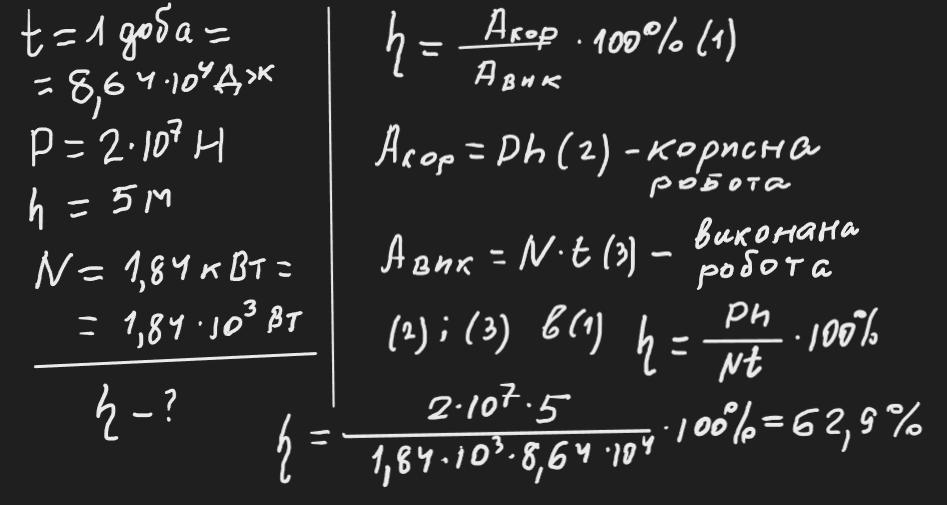 t = 1 доба =
= 8,64·10⁴ Дж
P = 2·10⁷ Н
h = 5 м
N = 1,84 кВт =
= 1,84·10³ Вт
η - ?
η = Aкор / Aвик · 100% (1)
Aкор = Ph (2) - корисна
робота
Aвик = N·t (3) - виконана
робота
(2) ; (3) в (1) η = Ph / Nt · 100%
η = 2·10⁷·5 / 1,84·10³·8,64·10⁴ · 100% = 62,9%